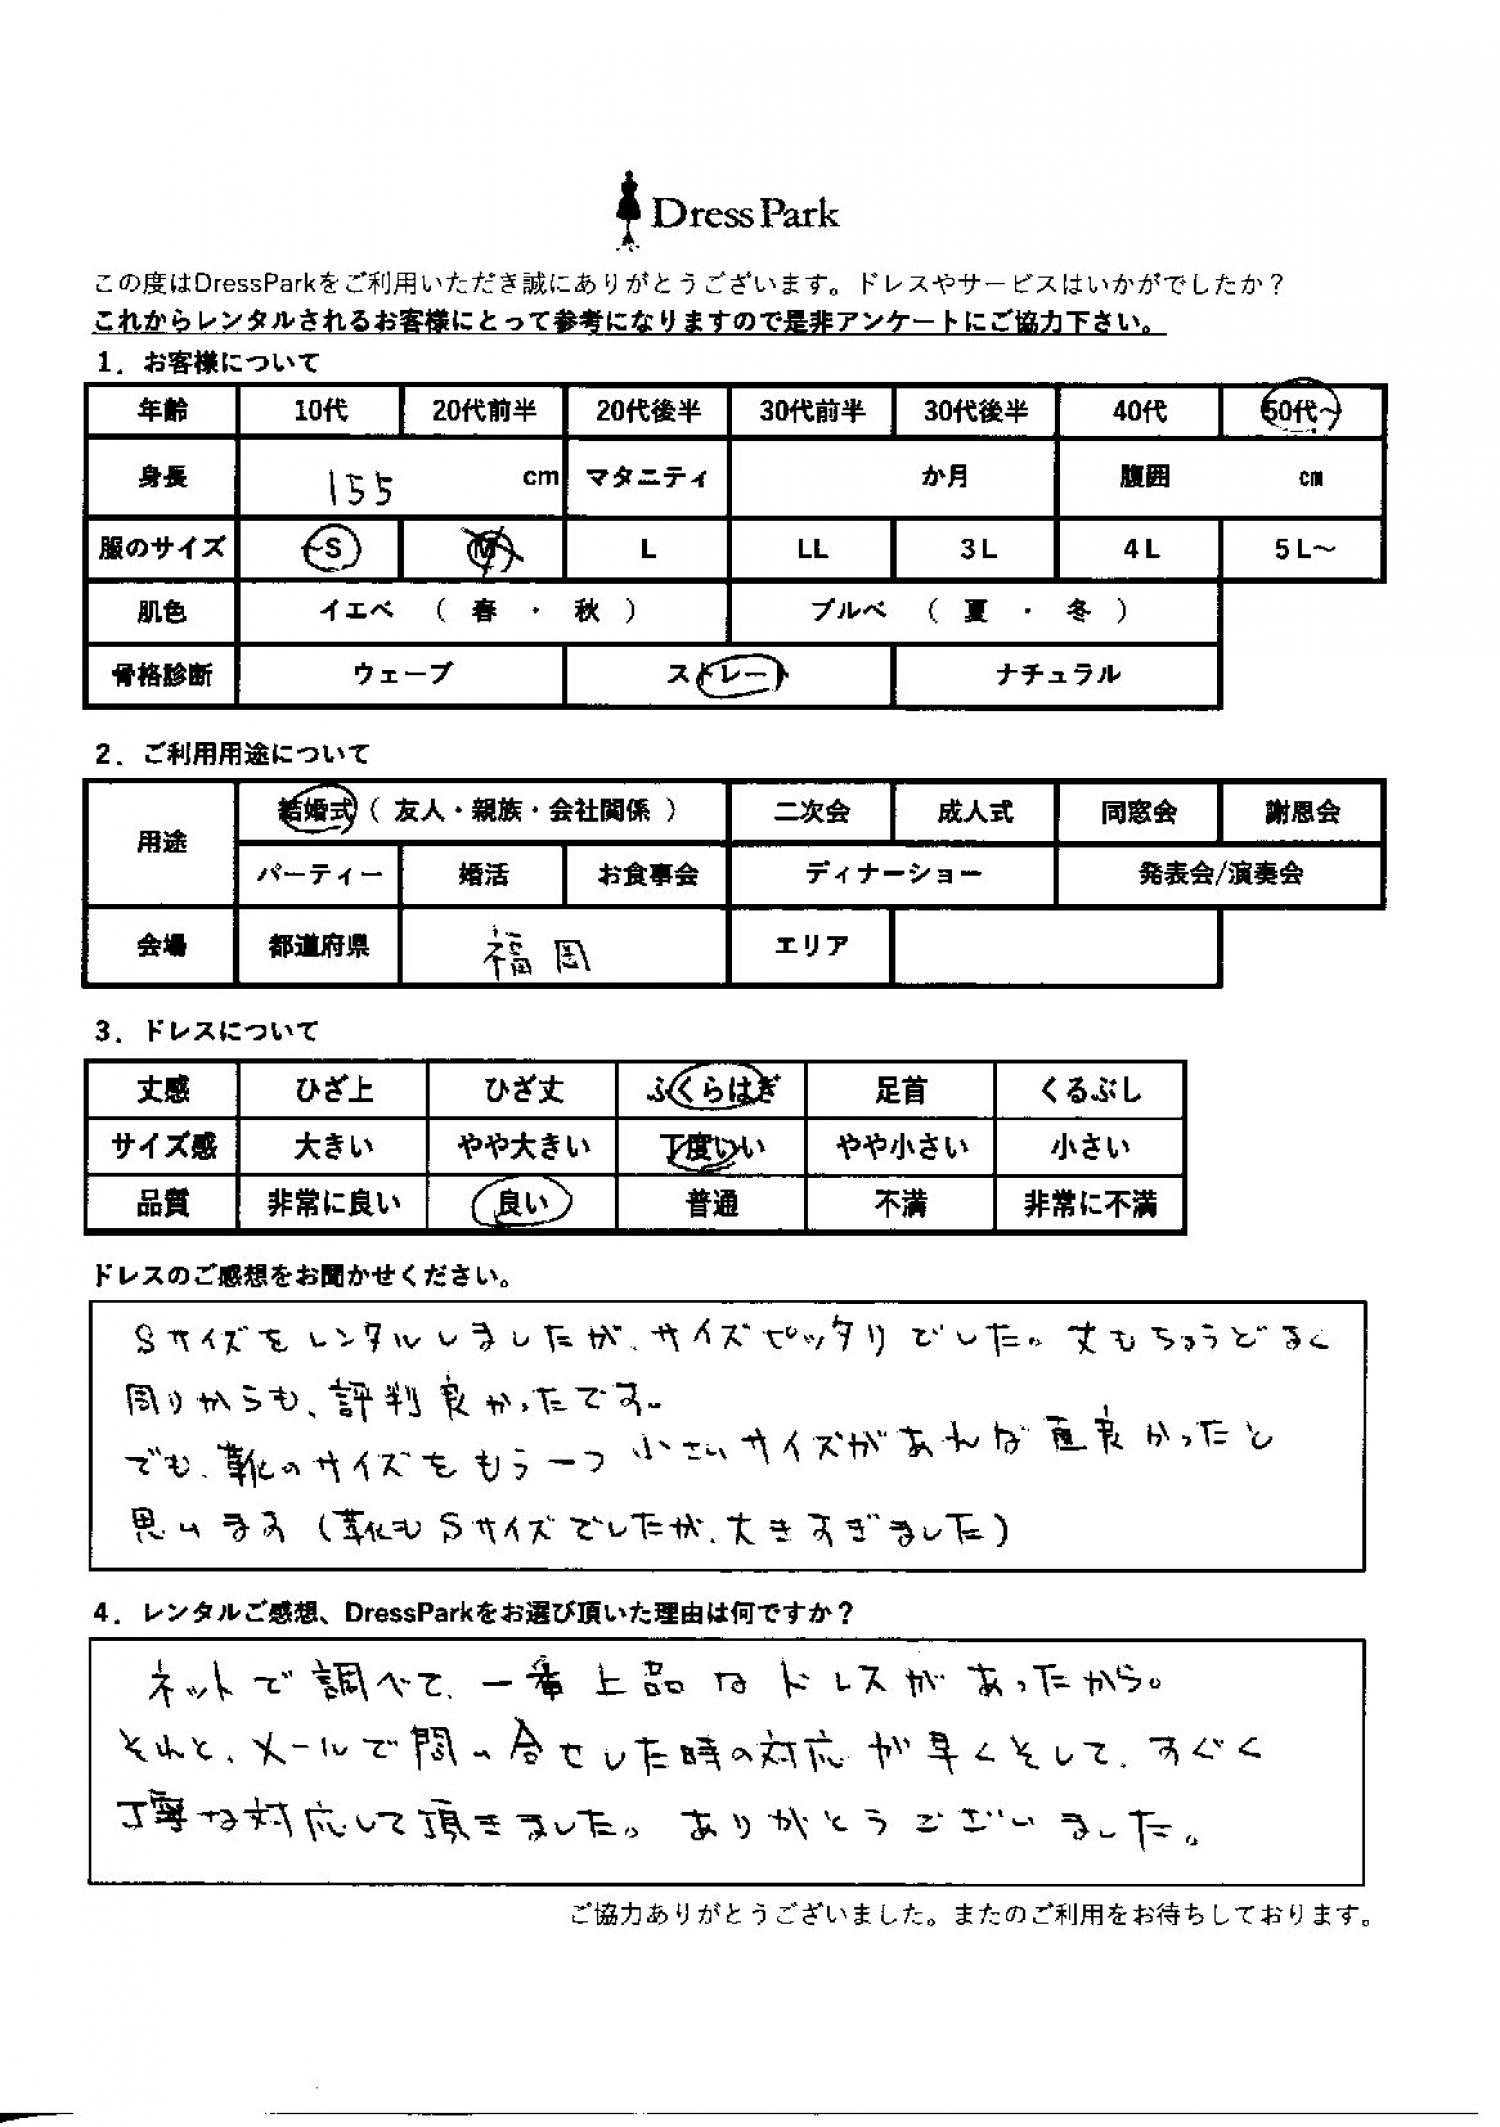 DressPark
この度はDressParkをご利用いただき誠にありがとうございます。ドレスやサービスはいかがでしたか？
これからレンタルされるお客様にとって参考になりますので是非アンケートにご協力下さい。
1．お客様について
年齢 10代 20代前半 20代後半 30代前半 30代後半 40代 50代～
身長 155 cm マタニティ か月 腹囲 cm
服のサイズ ～S M L LL 3L 4L 5L～
肌色 イエベ （ 春 ・ 秋 ） ブルベ （ 夏 ・ 冬 ）
骨格診断 ウェーブ ストレート ナチュラル
2．ご利用用途について
用途 結婚式（ 友人・親族・会社関係 ） 二次会 成人式 同窓会 謝恩会
パーティー 婚活 お食事会 ディナーショー 発表会/演奏会
会場 都道府県 福岡 エリア
3．ドレスについて
丈感 ひざ上 ひざ丈 ふくらはぎ 足首 くるぶし
サイズ感 大きい やや大きい 丁度いい やや小さい 小さい
品質 非常に良い 良い 普通 不満 非常に不満
ドレスのご感想をお聞かせください。
Sサイズをレンタルしましたが、サイズピッタリでした。丈もちょうどよく
周りからも、評判良かったです。
でも、靴のサイズをもう一つ小さいサイズがあれば 良かったと
思います（靴もSサイズでしたが、大きすぎました）
4．レンタルご感想、DressParkをお選び頂いた理由は何ですか？
ネットで調べて、一番上品なドレスがあったから。
それと、メールで問い合せした時の対応が早くそして、すごく
丁寧な対応して頂きました。ありがとうございました。
ご協力ありがとうございました。またのご利用をお待ちしております。